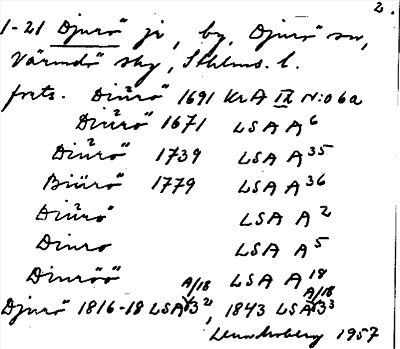 2.
1-21 Djurö jr, by, Djurö sn,
Värmdö skg, Sthlms. l.
forts. Diürö 1691 KrA IX N:o 6a
Diürö 1671 LSA A6
Diürö 1739 LSA A35
Biürö 1779 LSA A36
Diürö LSA A2
Diuro LSA A5
Diuröö LSA A18
Djurö 1816-18 LSA A/18 3 2), 1843 LSA A/18 3 3
1957